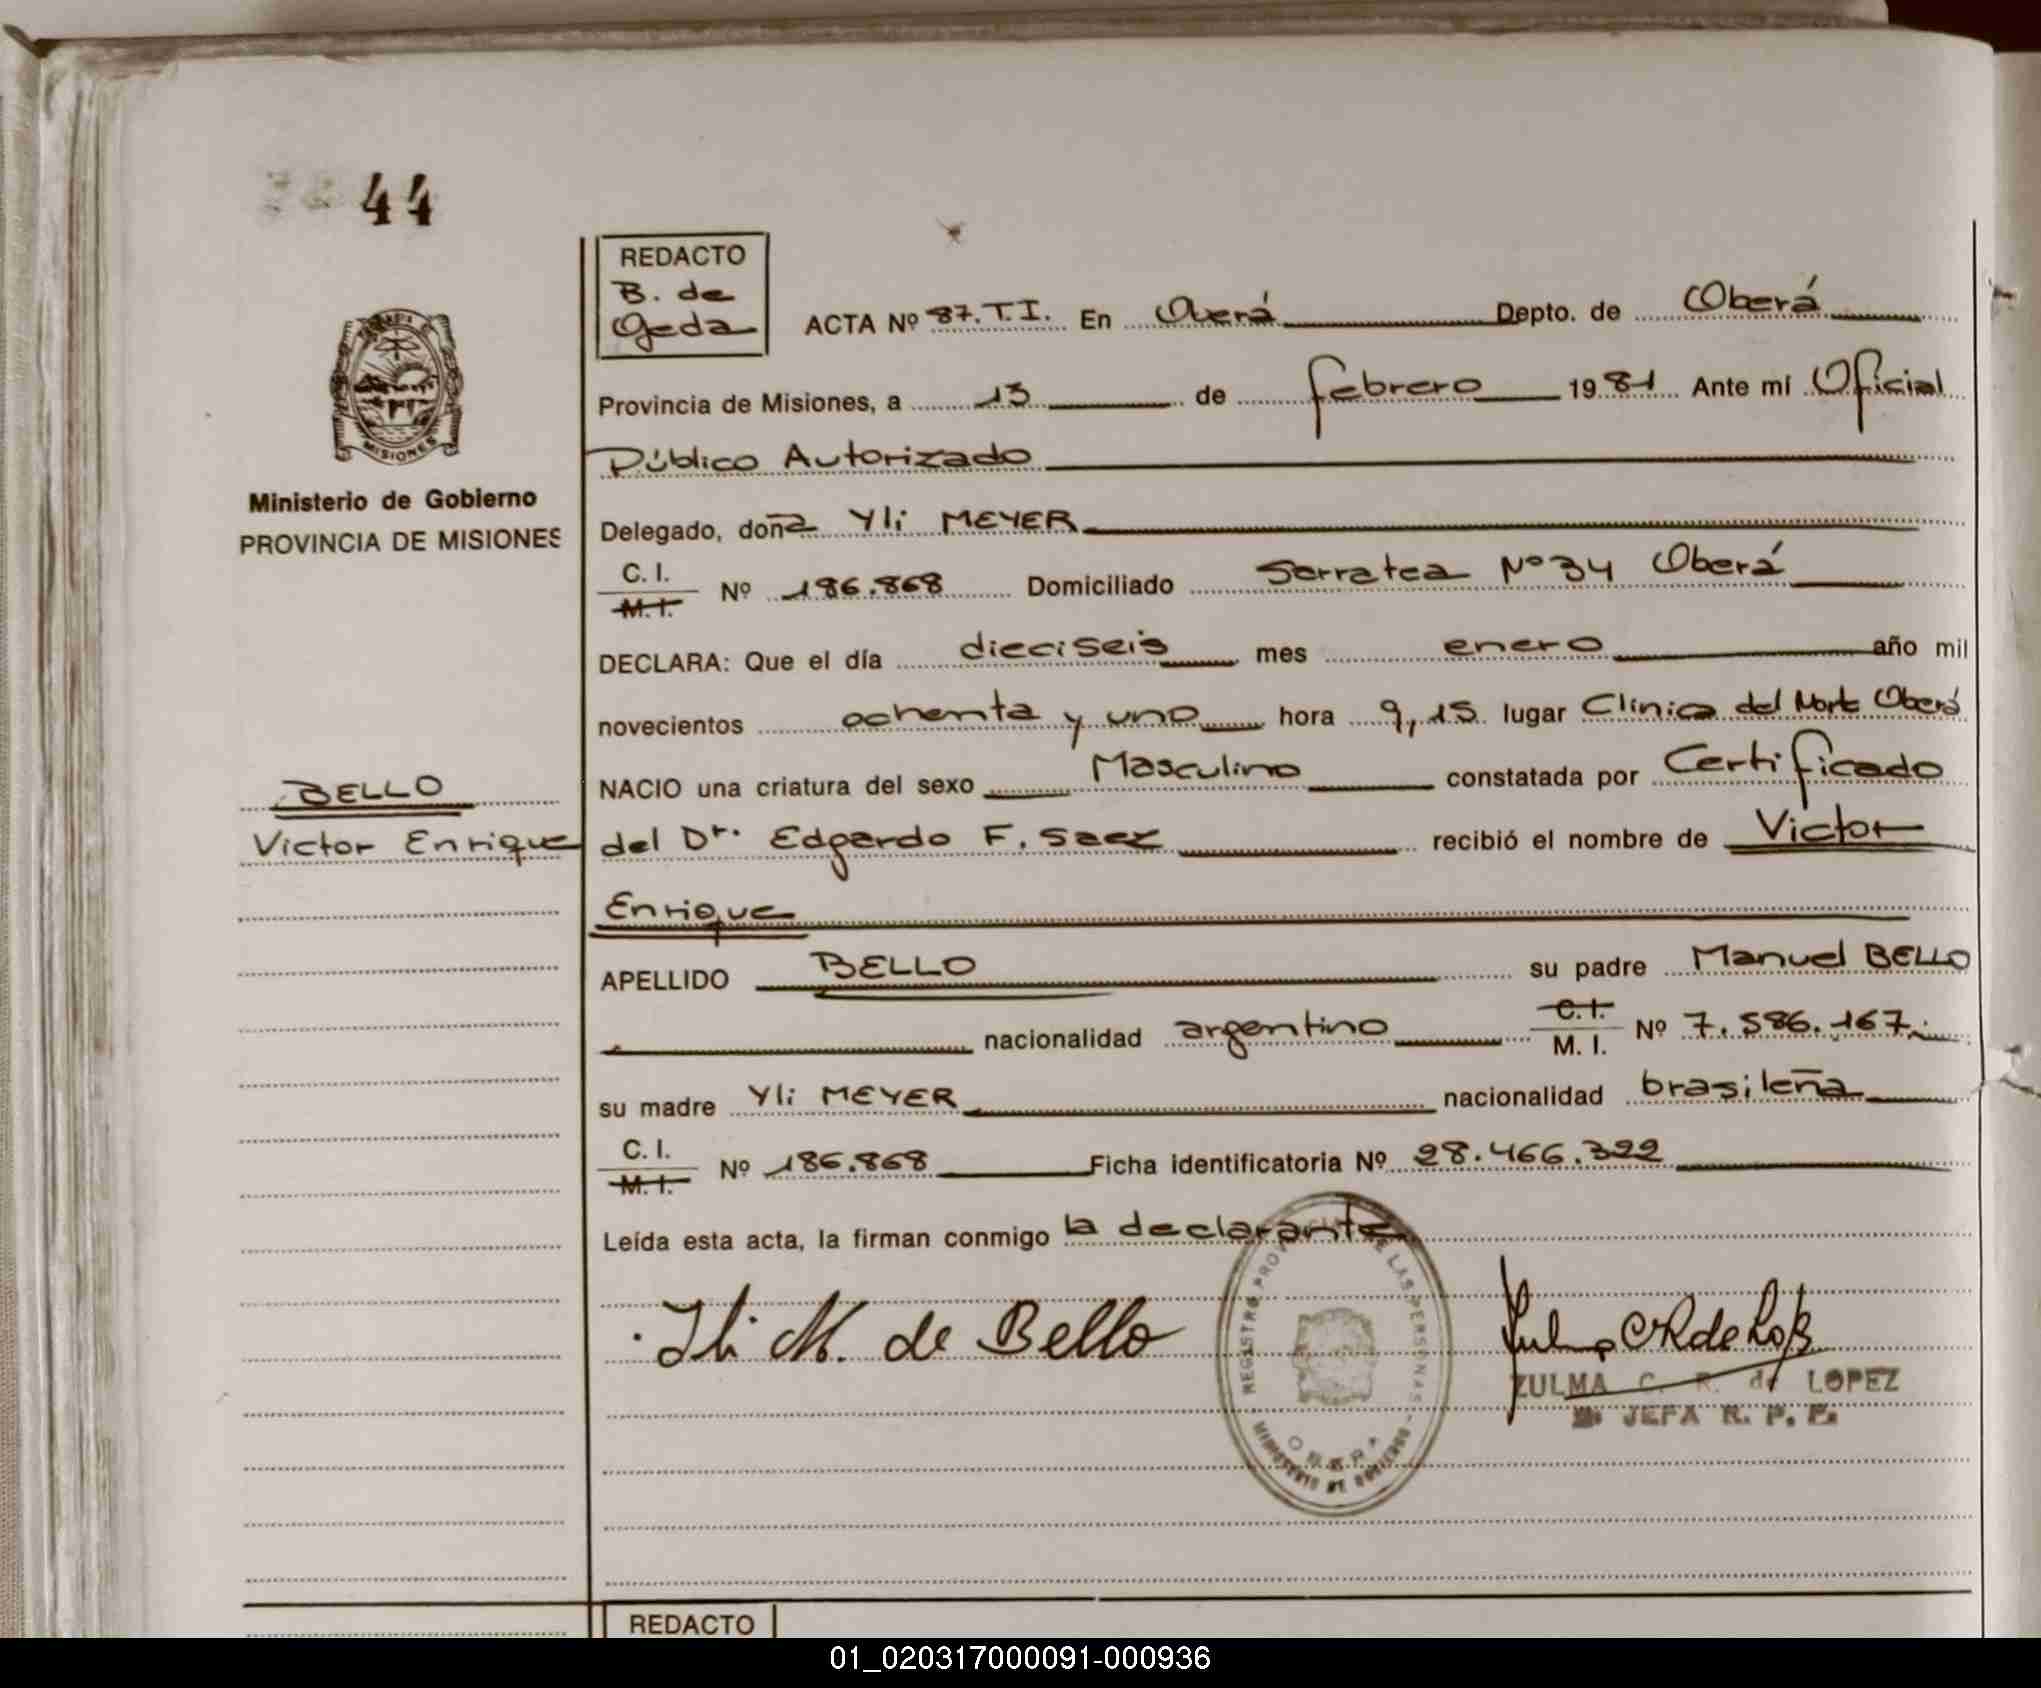 44
REDACTO
B. de
Geda
ACTA Nº 87.T.I. En Oberá Depto. de Oberá
Provincia de Misiones, a 13 de febrero 1981 Ante mí Oficial
Público Autorizado
MISIONES
Ministerio de Gobierno
PROVINCIA DE MISIONES
Delegado, doña Yli MEYER
C. I.
M. I. Nº 186.868 Domiciliado Serratea Nº 34 Oberá
DECLARA: Que el día dieciseis mes enero año mil
novecientos ochenta y uno hora 9,15 lugar Clinica del Norte Oberá
BELLO
Victor Enrique
NACIO una criatura del sexo Masculino constatada por Certificado
del Dr. Edgardo F. Saez recibió el nombre de Victor
Enrique
APELLIDO BELLO su padre Manuel BELLO
nacionalidad argentino C. I.
M. I. Nº 7.586.167
su madre Yli MEYER nacionalidad brasileña
C. I.
M. I. Nº 186.868 Ficha identificatoria Nº 28.466.322
Leída esta acta, la firman conmigo la declarante
Yli M. de Bello
REGISTRO PROVINCIAL DE LAS PERSONAS
OBERA
MINISTERIO DE GOBIERNO
ZULMA C. R. de LOPEZ
JEFA R. P. P.
REDACTO
01_020317000091-000936